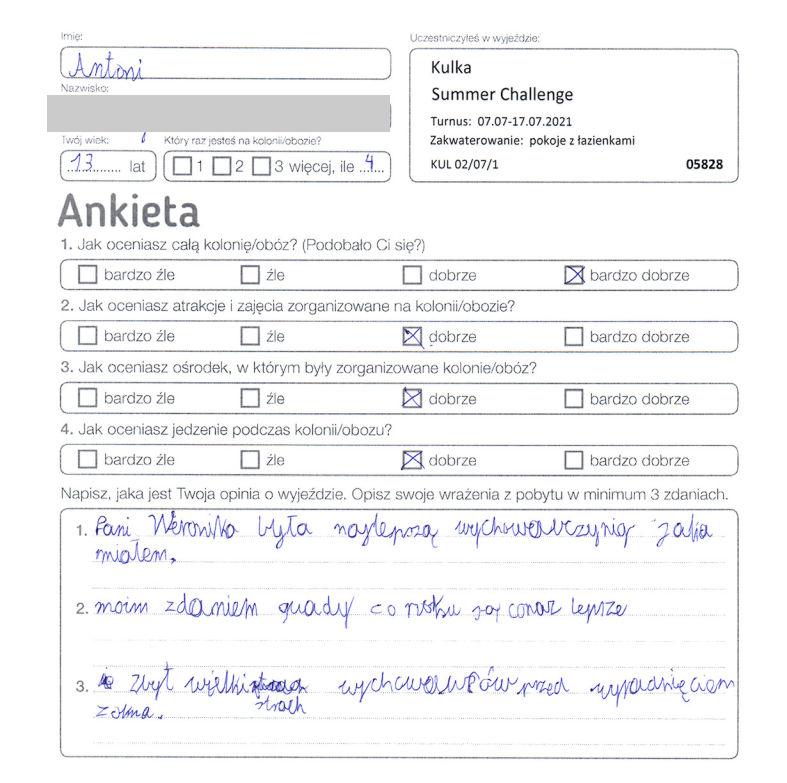 Imię:
Antoni
Nazwisko:
Twój wiek:
13 lat
Który raz jesteś na kolonii/obozie?
1 2 3 więcej, ile 4
Uczestniczyłeś w wyjeździe:
Kulka
Summer Challenge
Turnus: 07.07-17.07.2021
Zakwaterowanie: pokoje z łazienkami
KUL 02/07/1 05828
Ankieta
1. Jak oceniasz całą kolonię/obóz? (Podobało Ci się?)
bardzo źle źle dobrze bardzo dobrze
2. Jak oceniasz atrakcje i zajęcia zorganizowane na kolonii/obozie?
bardzo źle źle dobrze bardzo dobrze
3. Jak oceniasz ośrodek, w którym były zorganizowane kolonie/obóz?
bardzo źle źle dobrze bardzo dobrze
4. Jak oceniasz jedzenie podczas kolonii/obozu?
bardzo źle źle dobrze bardzo dobrze
Napisz, jaka jest Twoja opinia o wyjeździe. Opisz swoje wrażenia z pobytu w minimum 3 zdaniach.
1. Pani Weronika była najlepszą wychowawczynią jaką
miałem.
2. moim zdaniem quady co roku są coraz lepsze
3. zbyt wielki strach wychowawców przed wypadnięciem
z okna.